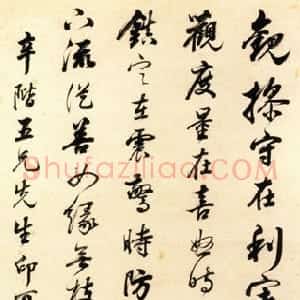 觀操守在利害
觀度量在喜怒時
鎮定在震驚時防
下流從善如緣無枝
辛階五兄先生
Shufaziliao.COM